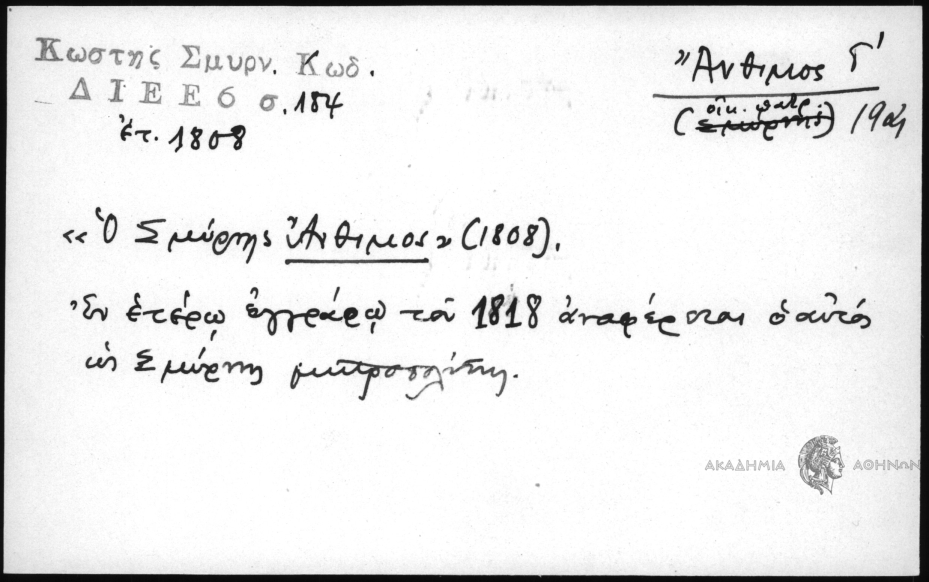 Κωστης Σμυρν. Κωδ.
ΔΙΕΕ 6 σ. 184
ἔτ. 1808
Ἄνθιμος Γ'
(οἰκ. πατρ. Σμύρνης)
«Ὁ Σμύρνης Ἄνθιμος» (1808).
Ἐν ἑτέρῳ ἐγγράφῳ τοῦ 1818 ἀναφέρεται ὁ αὐτός
ὡς Σμύρνης μητροπολίτης.
ΑΚΑΔΗΜΙΑ ΑΘΗΝΩΝ